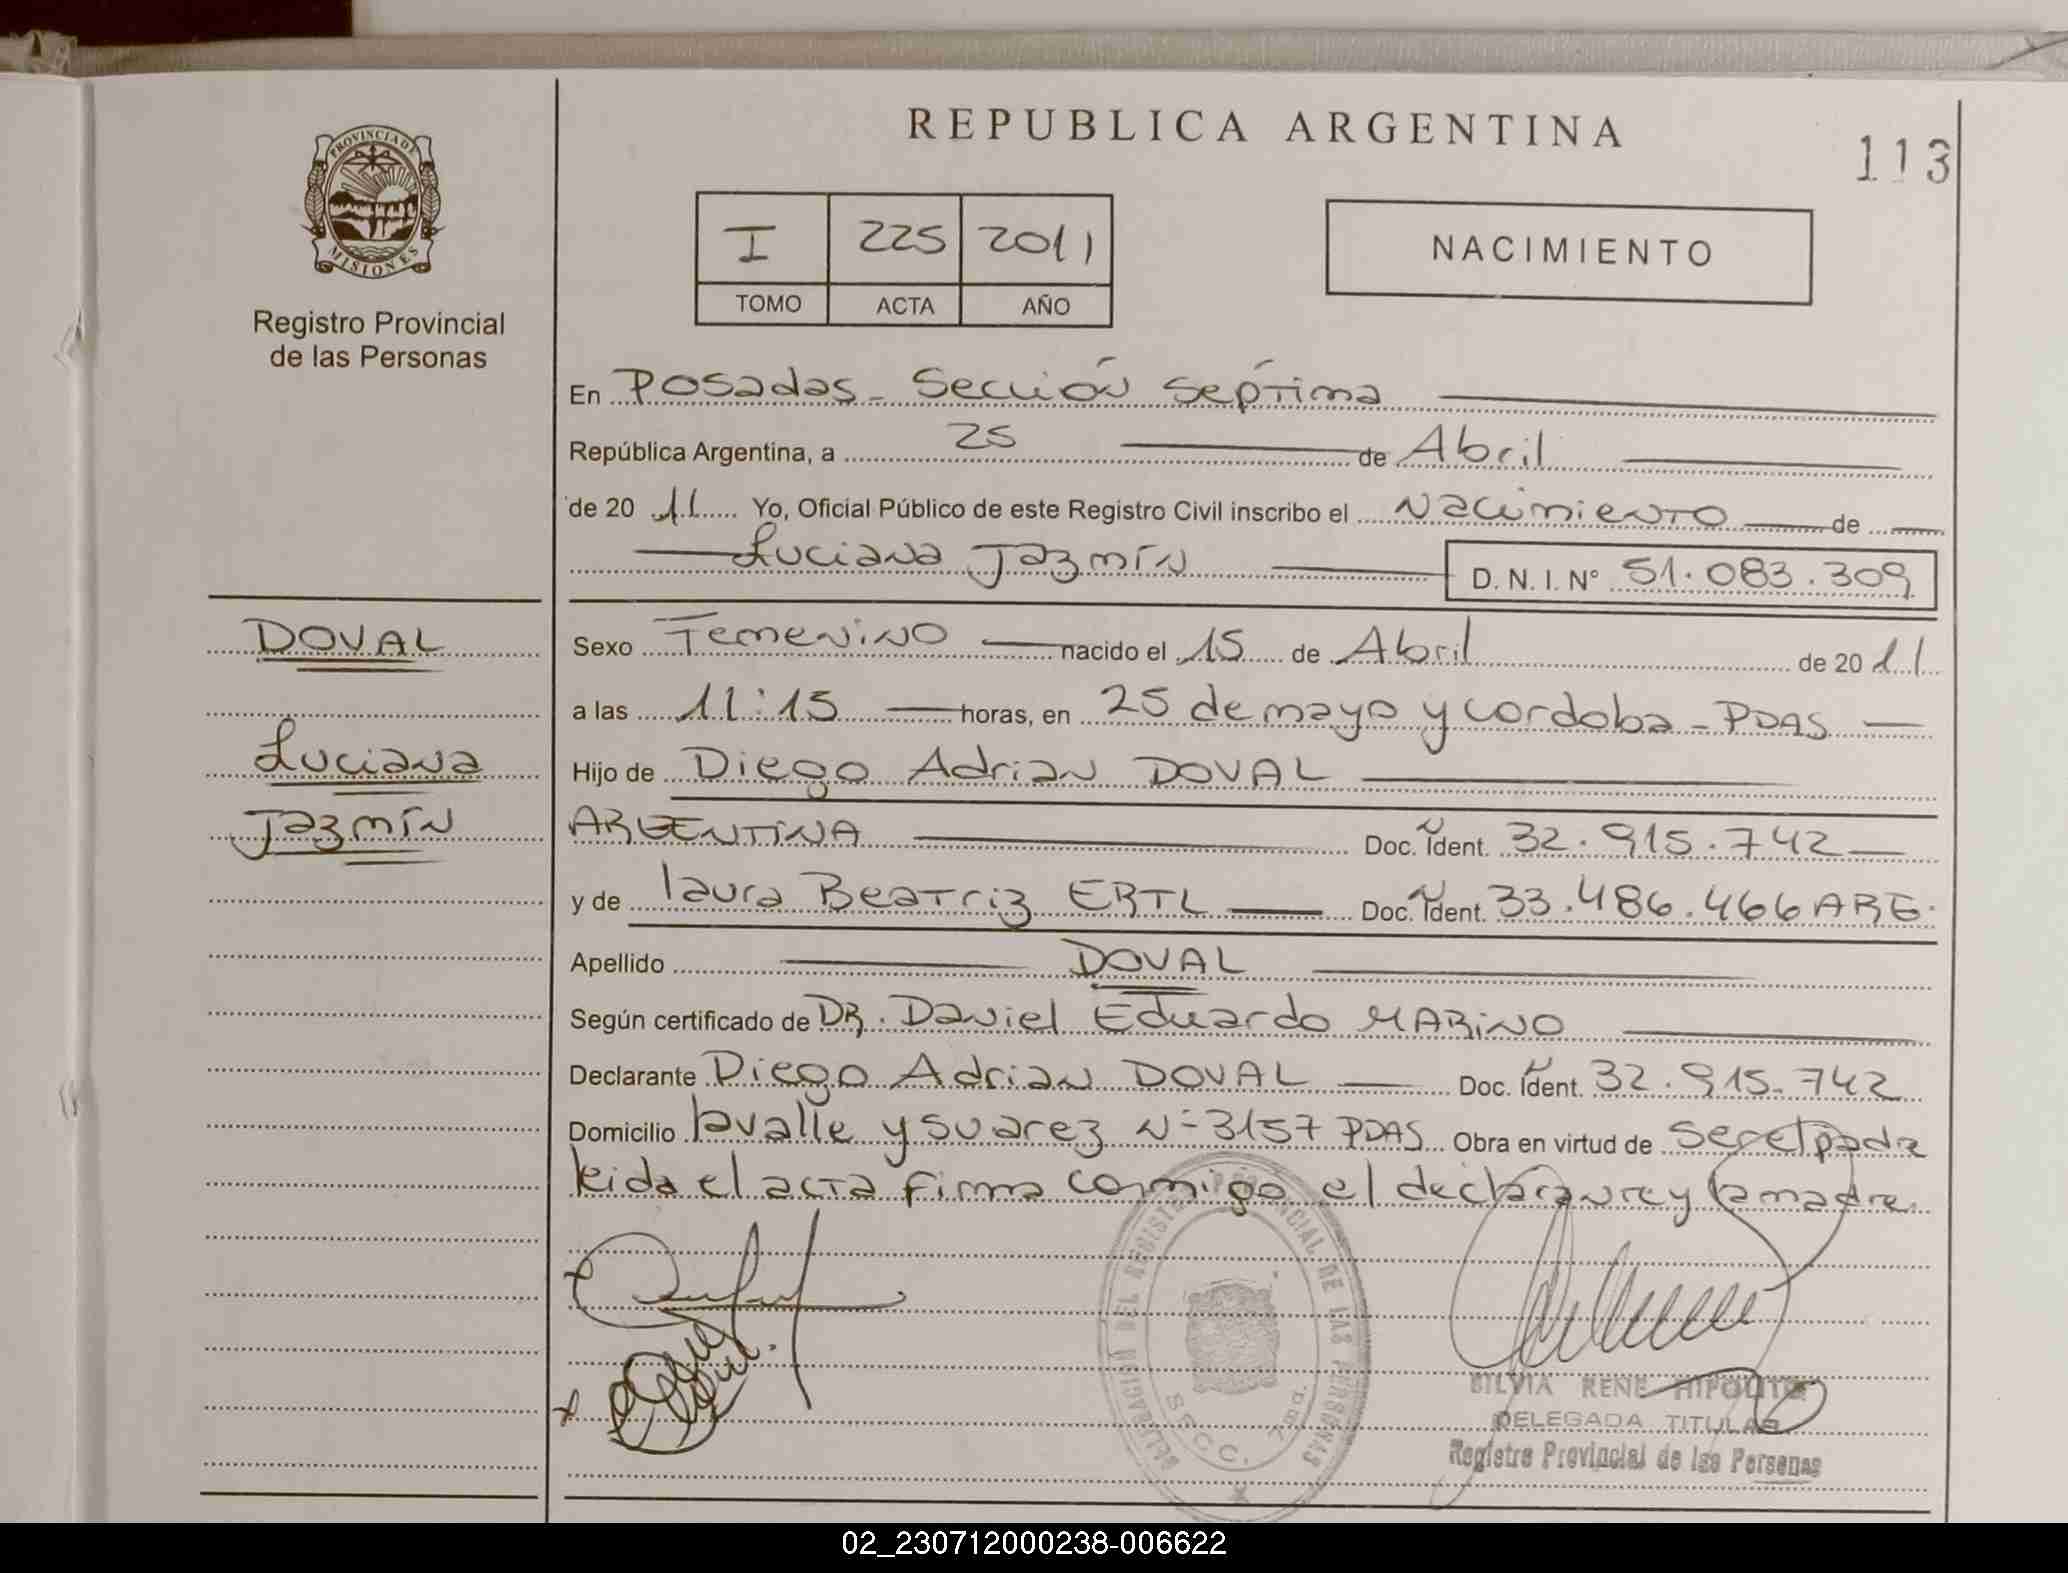 PROVINCIA DE
MISIONES
Registro Provincial
de las Personas
REPUBLICA ARGENTINA
113
I 225 2011
TOMO ACTA AÑO
NACIMIENTO
En Posadas - Sección Séptima
República Argentina, a 25 de Abril
de 20 11 Yo, Oficial Público de este Registro Civil inscribo el Nacimiento de
Luciana Jazmín D. N. I. N° 51.083.309
DOVAL
Luciana
Jazmín
Sexo Femenino nacido el 15 de Abril de 20 11
a las 11:15 horas, en 25 de mayo y cordoba - PDAS
Hijo de Diego Adrian DOVAL
ARGENTINA Doc. Ident. 32.915.742
y de laura Beatriz ERTL Doc. Ident. 33.486.466 ARG.
Apellido DOVAL
Según certificado de DR. Daniel Eduardo MARINO
Declarante Diego Adrian DOVAL Doc. Ident. 32.915.742
Domicilio lavalle y suarez N- 3157 PDAS Obra en virtud de ser el padre
leida el acta firma conmigo el declarante y la madre.
DELEGACION DEL REGISTRO PROVINCIAL DE LAS PERSONAS
SECC. 7ma.
SILVIA RENE HIPOLITO
DELEGADA TITULAR
Registro Provincial de las Personas
02_230712000238-006622